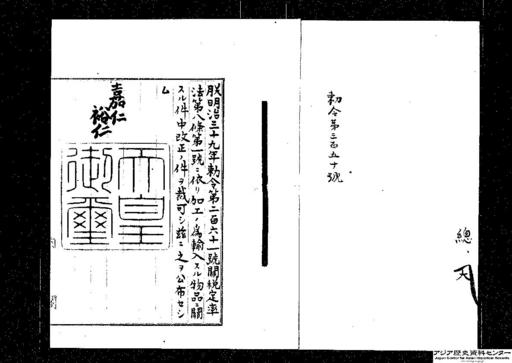 勅令第三百五十號
總
朕明治三十九年勅令第二百六十一號關税定率
法第八條第一號ニ依リ加工ノ爲輸入スル物品ニ關
スル件中改正ノ件ヲ裁可シ茲ニ之ヲ公布セシ
ム
嘉仁
裕仁
天皇
御璽
アジア歴史資料センター
Japan Center for Asian Historical Records